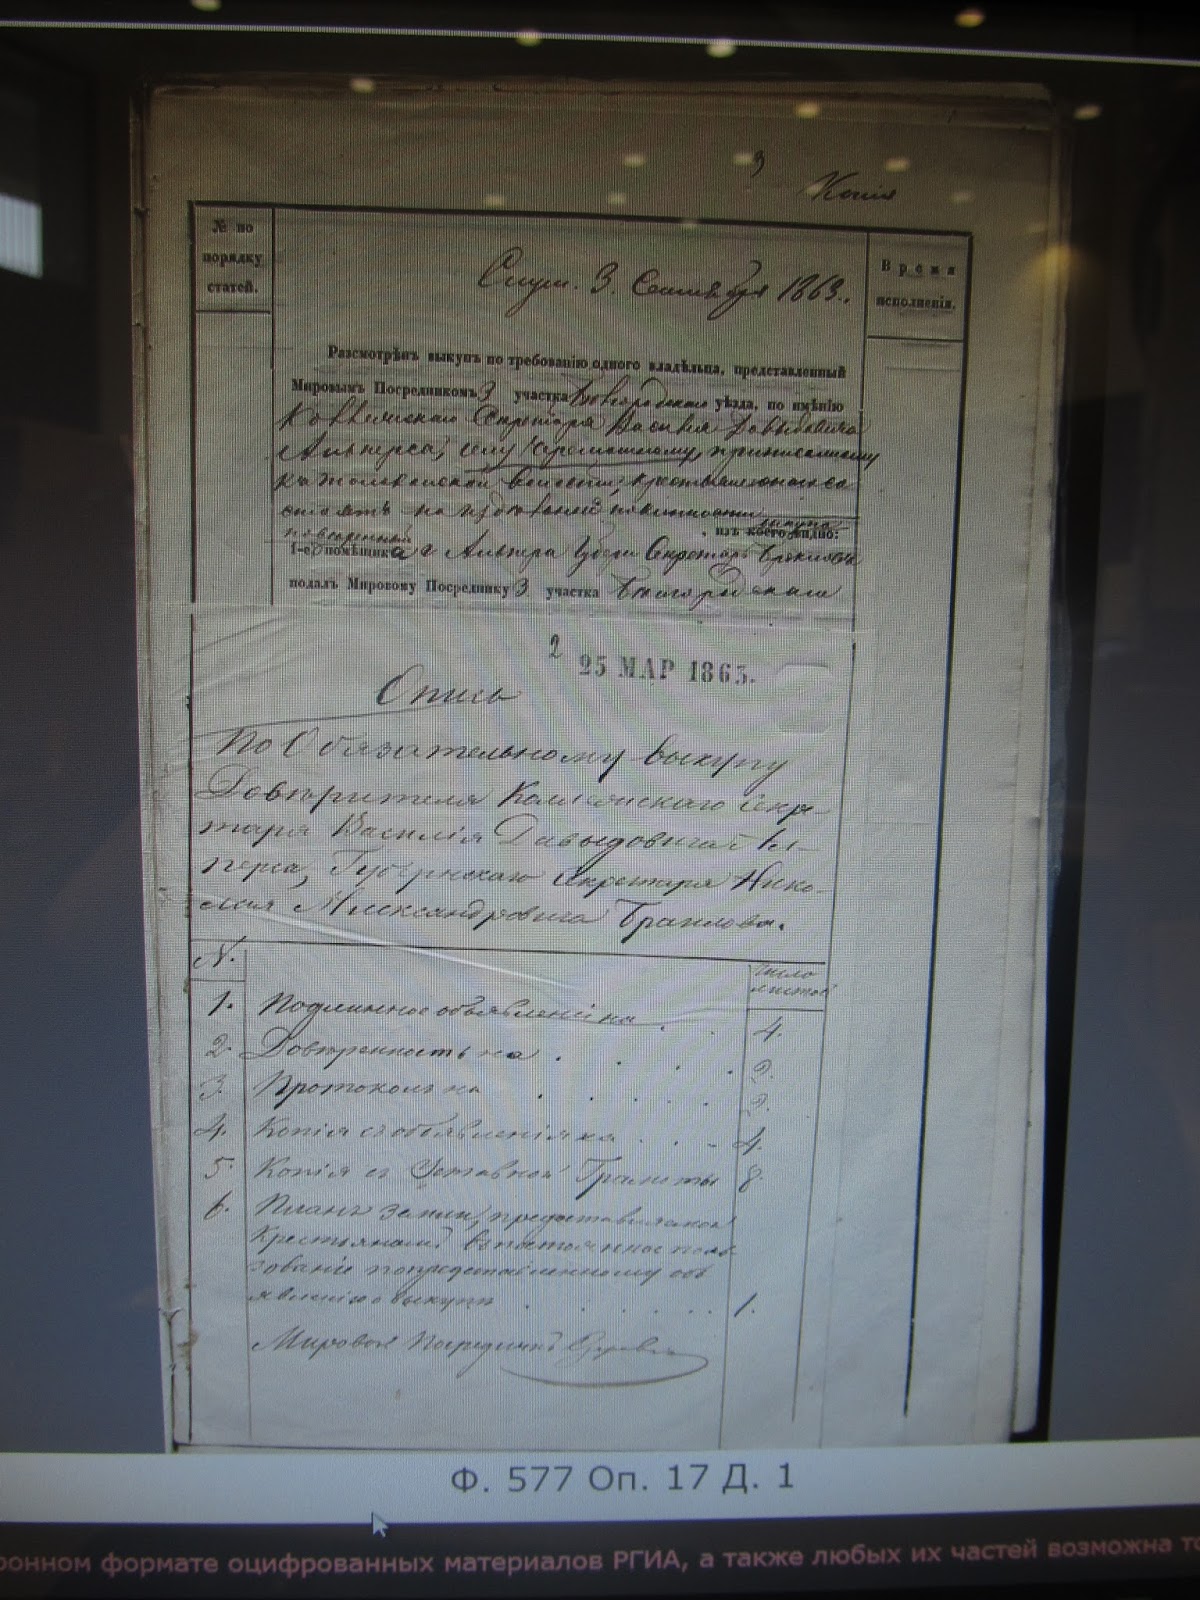 3
Копія
№ по
порядку
статей.
Время
исполненія.
Слуш. 3. Сентября 1863..
Разсмотрѣнъ выкупъ по требованію одного владѣльца, представленный
Мировымъ Посредникомъ 3 участка уѣзда, по имѣнію
Секретаря Василія Давыдовича
селу приписанному
волости, крестьяне
повинности
выкупа
, изъ коего видно:
повѣренный
1-е) помѣщика г Секретарь
подалъ Мировому Посреднику 3 участка
2
25 МАР 1863.
Опись
По Обязательному выкупу
Довѣрителя Коллежскаго Секре-
таря Василія Давыдовича Ал-
перса, Губернскаго Секретаря Нико-
лая Александровича
N.
Число
листовъ
1. Подлинное объявленіе на . . 4.
2. Довѣренность на . . . . 2.
3. Протоколъ на . . . . . 2.
4. Копія съ объявленія на . . - 4.
5. Копія съ Уставной Грамоты 8.
6. Планъ земли, предоставляемой
Крестьянамъ въ постоянное поль-
зованіе по представленному объ
явленію о выкупѣ . . . . . . 1.
Мировой Посредникъ
Ф. 577 Оп. 17 Д. 1
ронном формате оцифрованных материалов РГИА, а также любых их частей возможна то